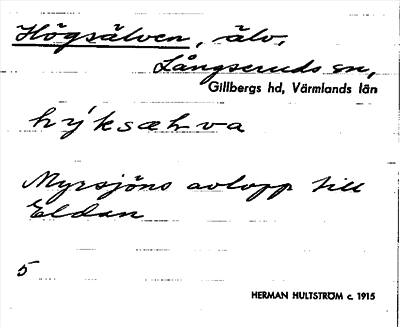 Högsälven, älv,
Långseruds sn,
Gillbergs hd, Värmlands län
hýksæhva
Myrsjöns avlopp till
Eldan
5
HERMAN HULTSTRÖM c. 1915